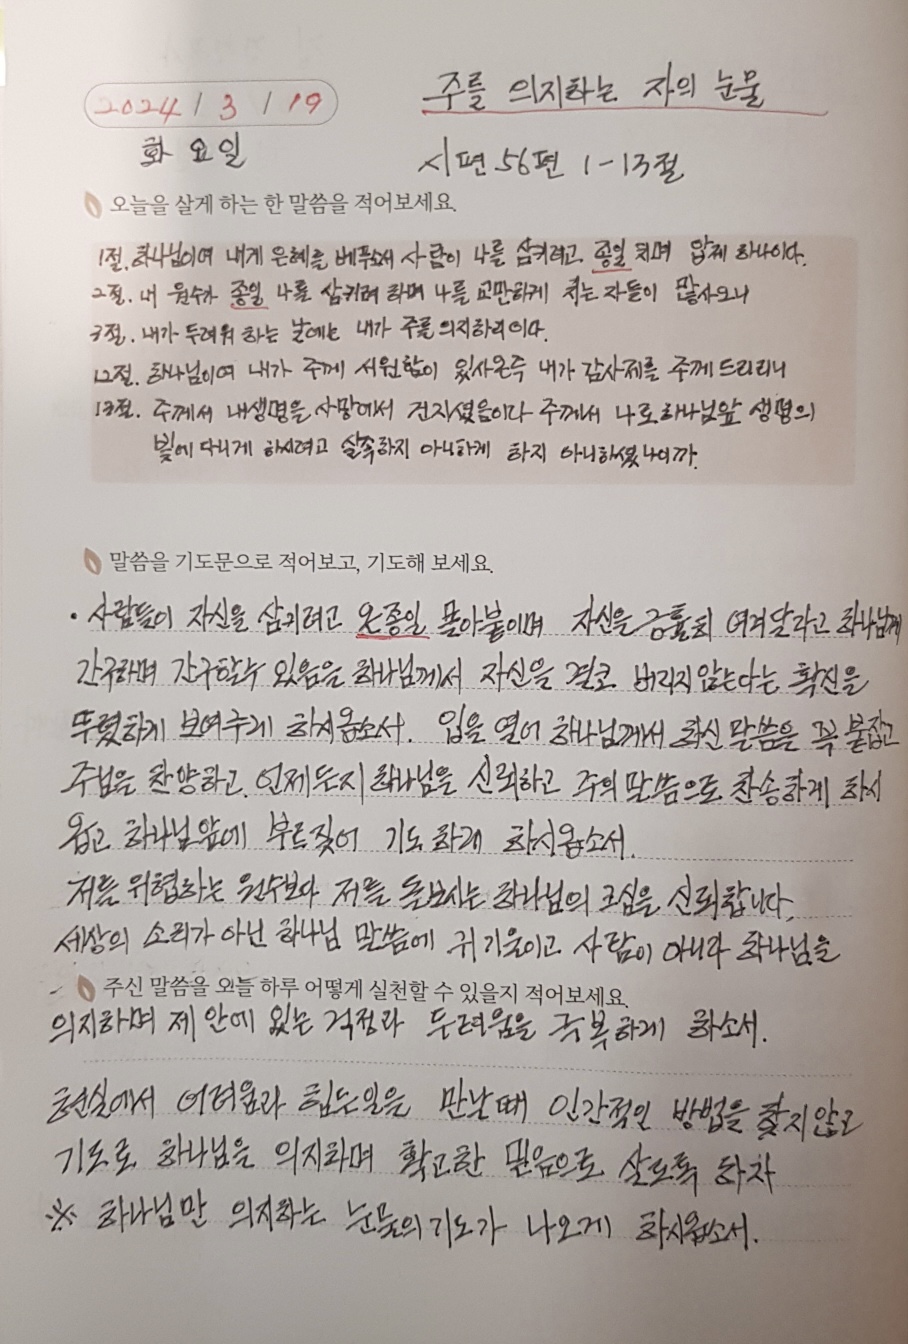 2024 / 3 / 19
주를 의지하는 자의 눈물
화요일
시편 56편 1-13절
오늘을 살게 하는 한 말씀을 적어보세요.
1절. 하나님이여 내게 은혜를 베푸소서 사람이 나를 삼키려고 종일 치며 압제 하나이다.
2절. 내 원수가 종일 나를 삼키려 하며 나를 교만하게 치는 자들이 많사오니
3절. 내가 두려워 하는 날에는 내가 주를 의지하리이다.
12절. 하나님이여 내가 주께 서원함이 있사온즉 내가 감사제를 주께 드리리니
13절. 주께서 내생명을 사망에서 건지셨음이다 주께서 나로하나님앞 생명의
빛에 다니게 하시려고 실족하지 아니하게 하지 아니하셨나이까.
말씀을 기도문으로 적어보고, 기도해 보세요.
· 사람들이 자신을 삼키려고 온종일 몰아붙이며 자신을 긍휼히 여겨달라고 하나님께
간구하며 간구할수 있음을 하나님께서 자신을 결코 버리지않는다는 확신을
뚜렷하게 보여주게 하시옵소서. 입을 열어 하나님께서 하신 말씀을 꼭 붙잡고
주님을 찬양하고. 언제든지 하나님을 신뢰하고 주의 말씀으로 찬송하게 하시
옵고 하나님앞에 부르짖어 기도하게 하시옵소서.
저를 위협하는 원수보다 저를 돌보시는 하나님의 크심을 신뢰합니다.
세상의 소리가 아닌 하나님 말씀에 귀 기울이고 사람이 아니라 하나님을
주신 말씀을 오늘 하루 어떻게 실천할 수 있을지 적어보세요.
의지하며 제 안에 있는 걱정과 두려움을 극복하게 하소서.
현실에서 어려움과 힘든일을 만날때 인간적인 방법을 찾지않고
기도로 하나님을 의지하며 확고한 믿음으로 살도록 하자
※ 하나님만 의지하는 눈물의기도가 나오게 하시옵소서.